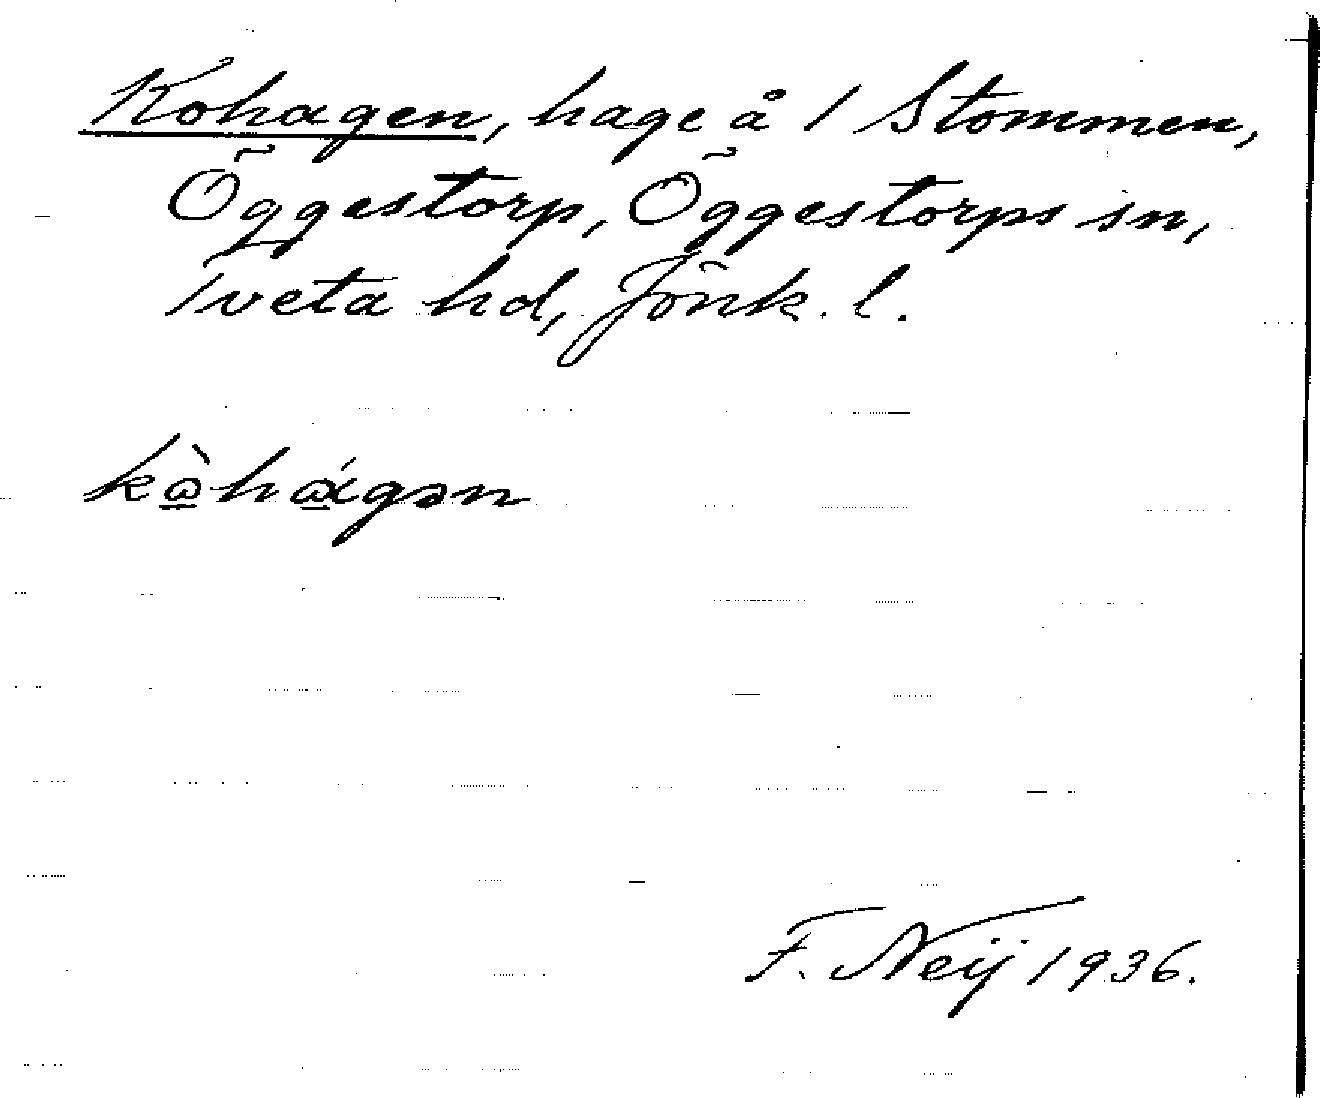 Kohagen, hage å 1 Stommen,
Öggestorp, Öggestorps sn,
Tveta hd, Jönk. l.
F. Neij 1936.